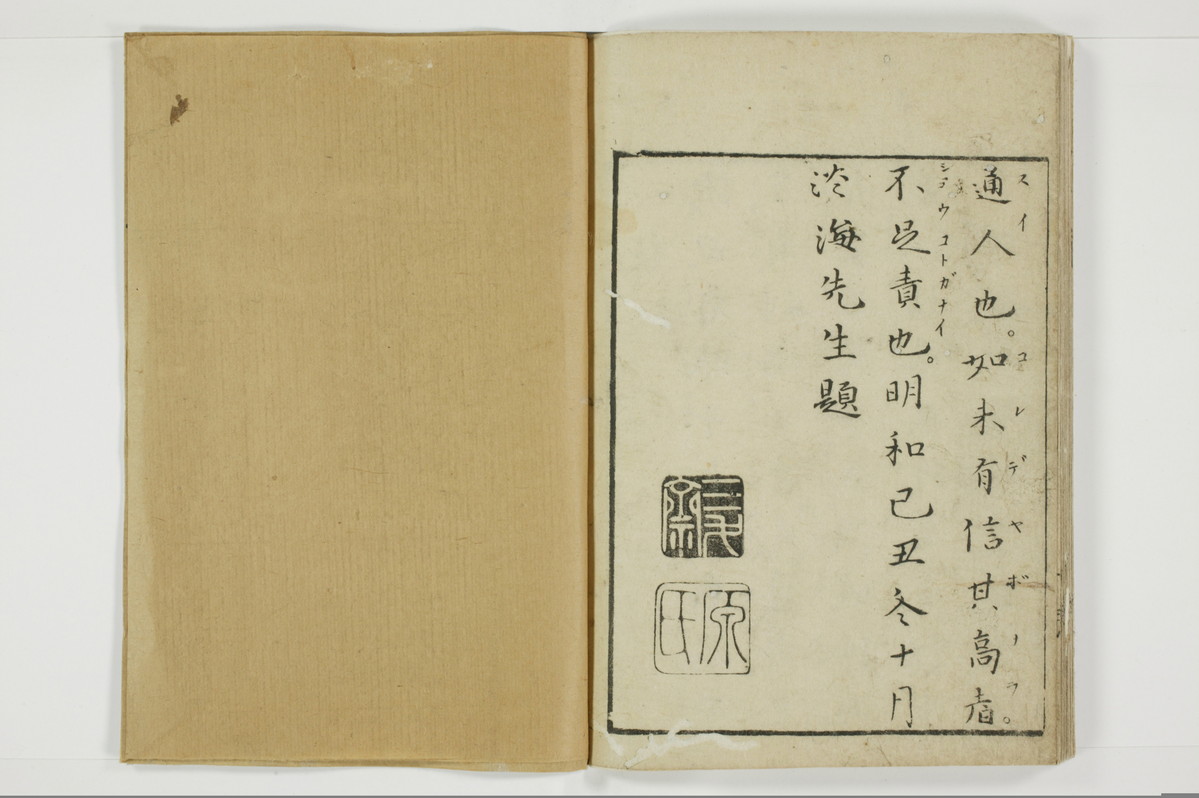 通人也。如未有信其高者。
スイ コレデヤボナラ
不足責也。明和己丑冬十月
シヤウコトガナイ
淡海先生題
原氏